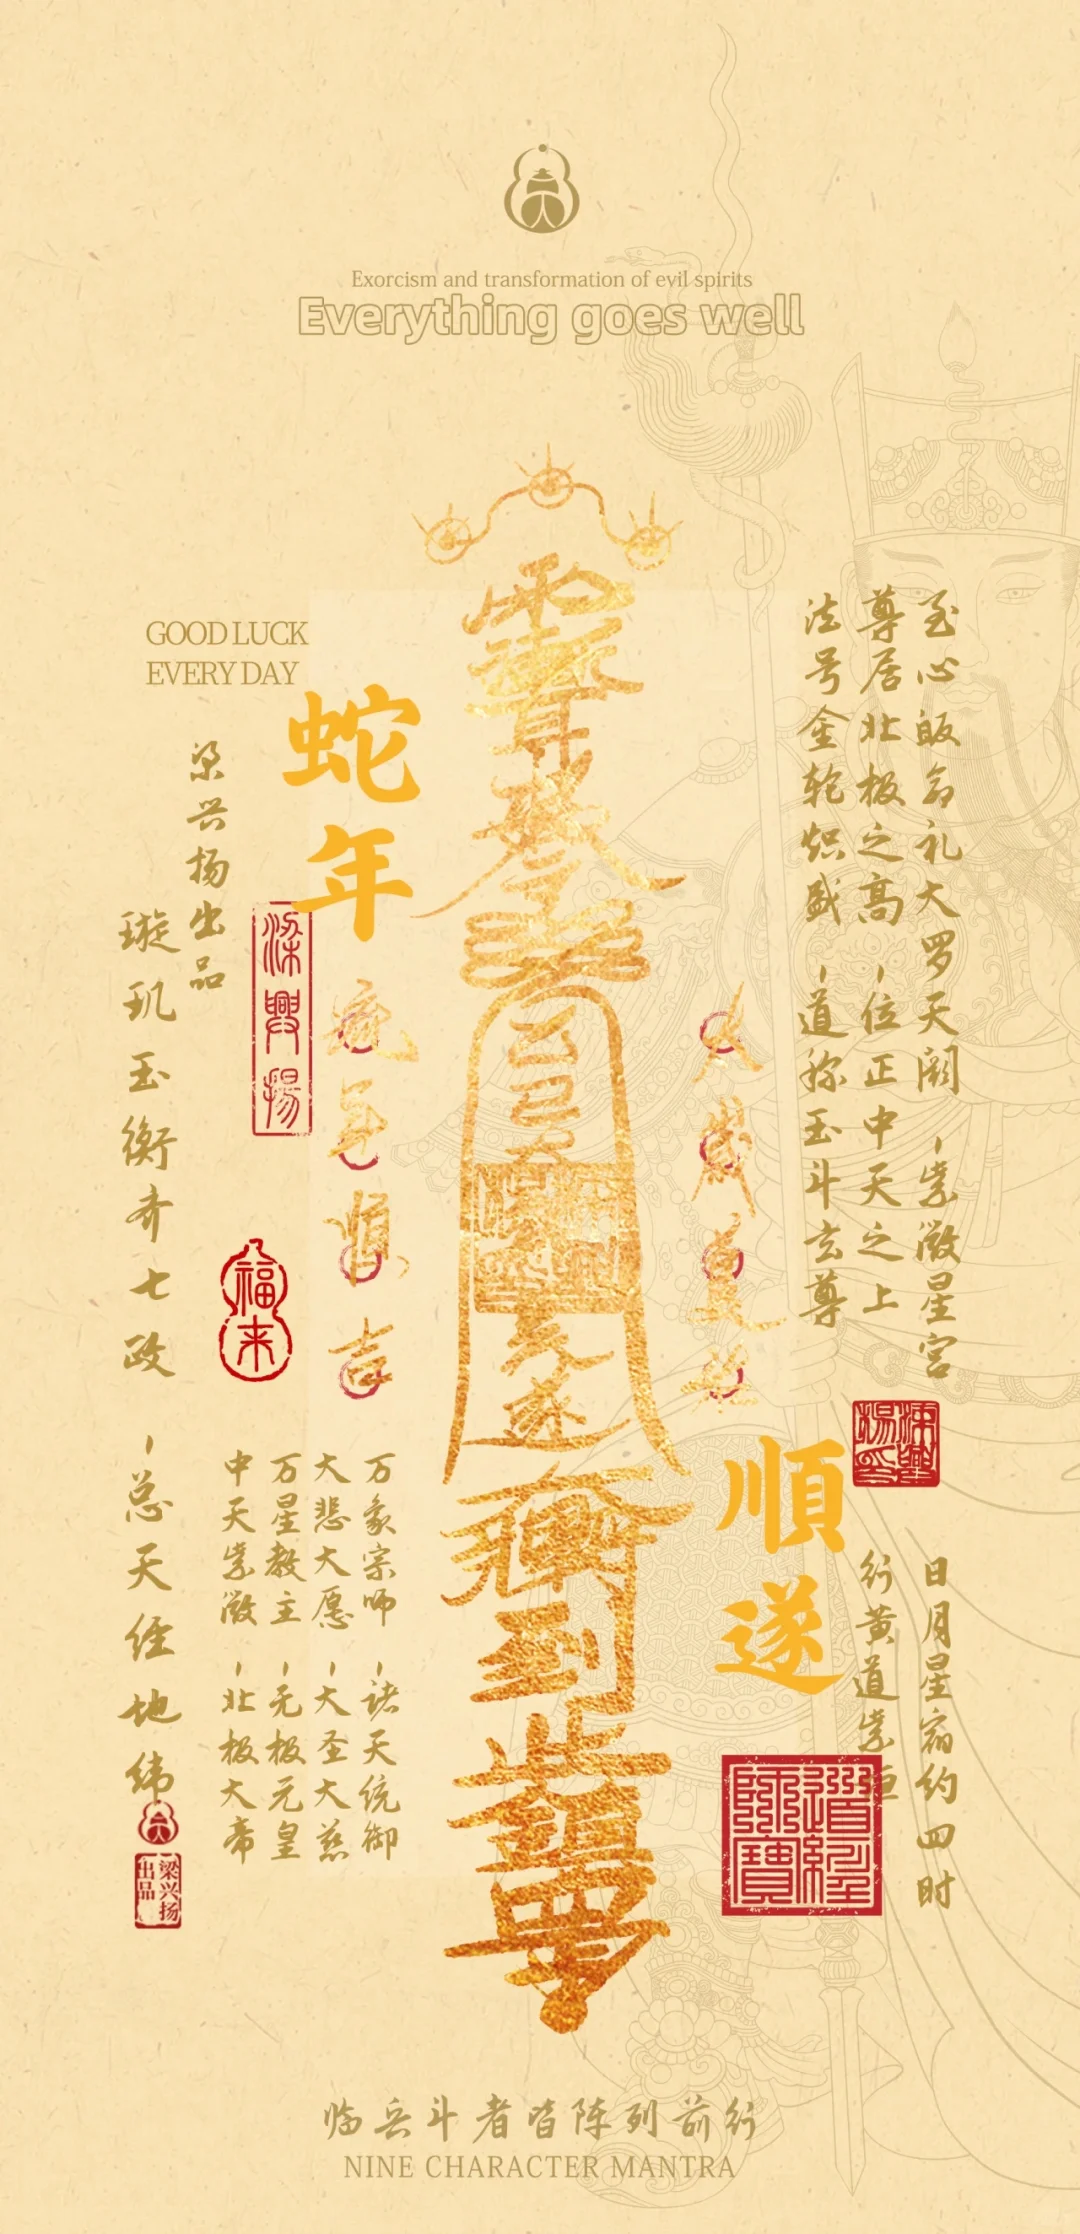 Exorcism and transformation of evil spirits
Everything goes well
GOOD LUCK
EVERY DAY
至心皈命礼大罗天阙，紫微星宫
尊居北极之高，位正中天之上
法号金轮炽盛，道称玉斗玄尊
蛇年
顺遂
梁兴扬出品
梁興揚
璇玑玉衡齐七政，总天经地纬
福来
日月星宿约四时
行黄道紫垣
万象宗师，诸天统御
大悲大愿，大圣大慈
万星教主，无极元皇
中天紫微，北极大帝
道經師寶
梁兴扬
出品
临兵斗者皆阵列前行
NINE CHARACTER MANTRA